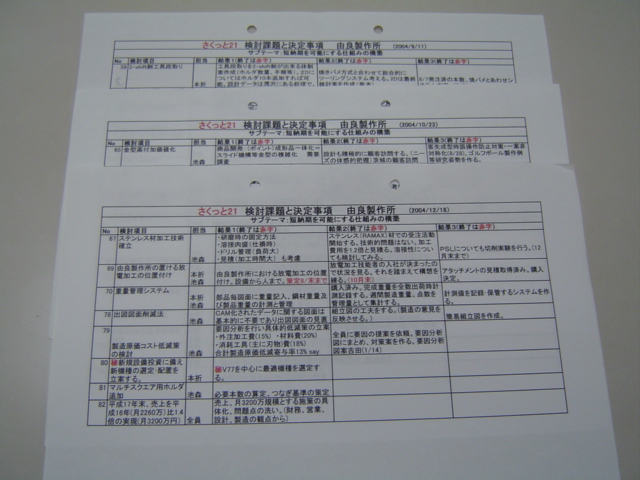 さくっと21 検討課題と決定事項 由良製作所 (2004/9/11)
サブテーマ:短納期を可能にする仕組みの構築
No 検討項目 担当 結果1(終了は赤字) 結果2(終了は赤字) 結果3(終了は赤字)
本折
さくっと21 検討課題と決定事項 由良製作所 (2004/10/23)
サブテーマ:短納期を可能にする仕組みの構築
No 検討項目 担当 結果1(終了は赤字) 結果2(終了は赤字) 結果3(終了は赤字)
金型高付加価値化
池森
さくっと21 検討課題と決定事項 由良製作所 (2004/12/18)
サブテーマ:短納期を可能にする仕組みの構築
No 検討項目 担当 結果1(終了は赤字) 結果2(終了は赤字) 結果3(終了は赤字)
67 ステンレス材加工技術
確立
池森
・研磨時の固定方法
・溶接肉盛(仕損時)
・ドリル管理(負荷大)
・見積(加工時間大)も考慮
ステンレス(RAMAX)材での受注活動
開始する。技術的問題はない。加工
費用を1.2倍と見積る。溶接性につい
ても検討してみる。
PSLについても切削実験を行う。(12
月末まで)
69 由良製作所の置ける放
電加工の位置付け
本折
池森
由良製作所における放電加工の位置
付け。設備から人まで。
放電加工技能者の入社が決まったの
で状況を見る。それを踏まえて構想を
練る。(10月末)
アタッチメントの見積取得済み。購入
決定。
70 重量管理システム
本折
池森
部品毎図面に重量記入、鋼材重量及
び製品重量の計測と管理
購入済み。完成重量を全数出荷時計
測記録する。週間製造重量、点数を
管理量として集計する。
計測値を記録・保管するシステムを作
る。
78 出図図面削減法
池森
CAM化されたデータに関する図面は
基本的に不要であり出図図面の見直
組立図の工夫をする。(製造の意見を
反映させる。)
簡易組立図を作成。
79
製造原価コスト低減策
の検討
池森
要因分析を行い具体的低減策の立案
・外注加工費(15%) ・材料費(20%)
・消耗工具(主に刃物)費(18%)
合計製造原価低減寄与率13% say
全員に要因の提案を依頼。要因分析
図にまとめ、対策案を作る。要因分析
図案吉田(1/14)
80 秘新規設備投資に備え
新機種の選定・配置を
立案する。
本折
秘V77を中心に最適機種を選定す
る。
81 マルチスクエア用ホルダ
追加
池森
必要本数の算定、つなぎ基準の策定
82 平成17年末、売上を平
成16年(月2260万)比1.4
倍の実現(月3200万円)
全員
売上、月3200万規模とする施策の具
体化、問題点の洗い。(財務、営業、
設計、製造の観点から)